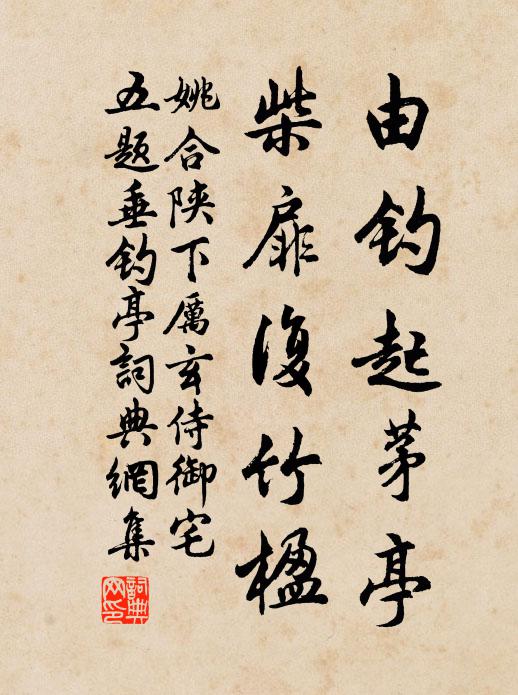 由钓起茅亭
柴扉復竹楹
姚合陝下厲玄侍御宅
五题垂钓亭詞典網集
詞典网印